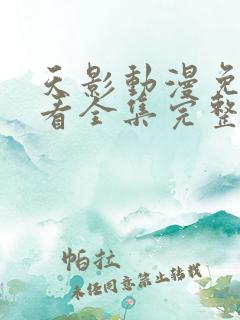 天影動漫免
看全集完整
帕拉
未经同意禁止转载